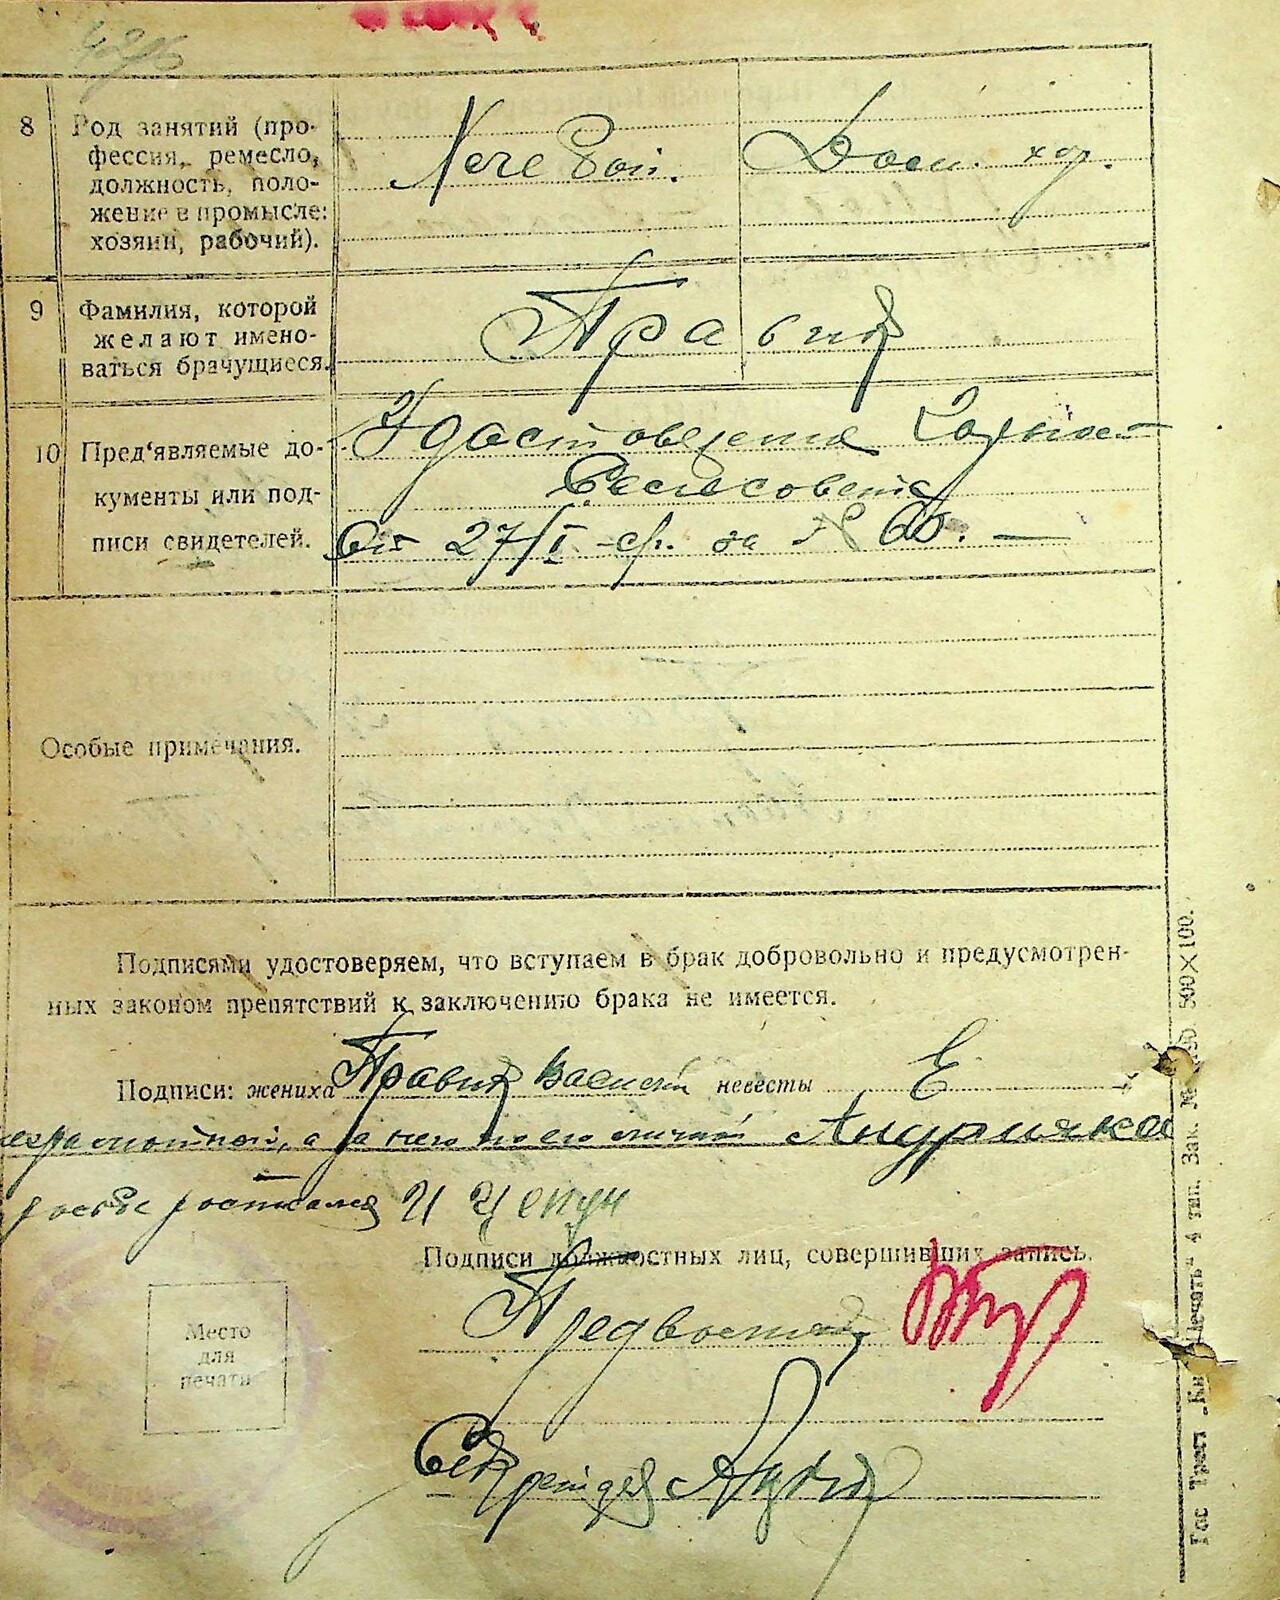 8 Род занятий (про-
фессия, ремесло,
должность, поло-
жение в промысле:
хозяин, рабочий).
Дом. хоз.
9 Фамилия, которой
желают имено-
ваться брачущиеся.
Правик
10 Пред‘являемые до-
кументы или под-
писи свидетелей.
Удостоверения
Сельсовета
От 27/I с/г. за № 60. —
Особые примечания.
Подписями удостоверяем, что вступаем в брак добровольно и предусмотрен-
ных законом препятствий к заключению брака не имеется.
Подписи: жениха Правик Василий невесты Е
неграмотной, а за него по его личной
росписался И
Подписи должностных лиц, совершивших запись.
Место
для
печати
Секретарь
Гос. Трест „Кн 4 тип. Зак. № 500×100.